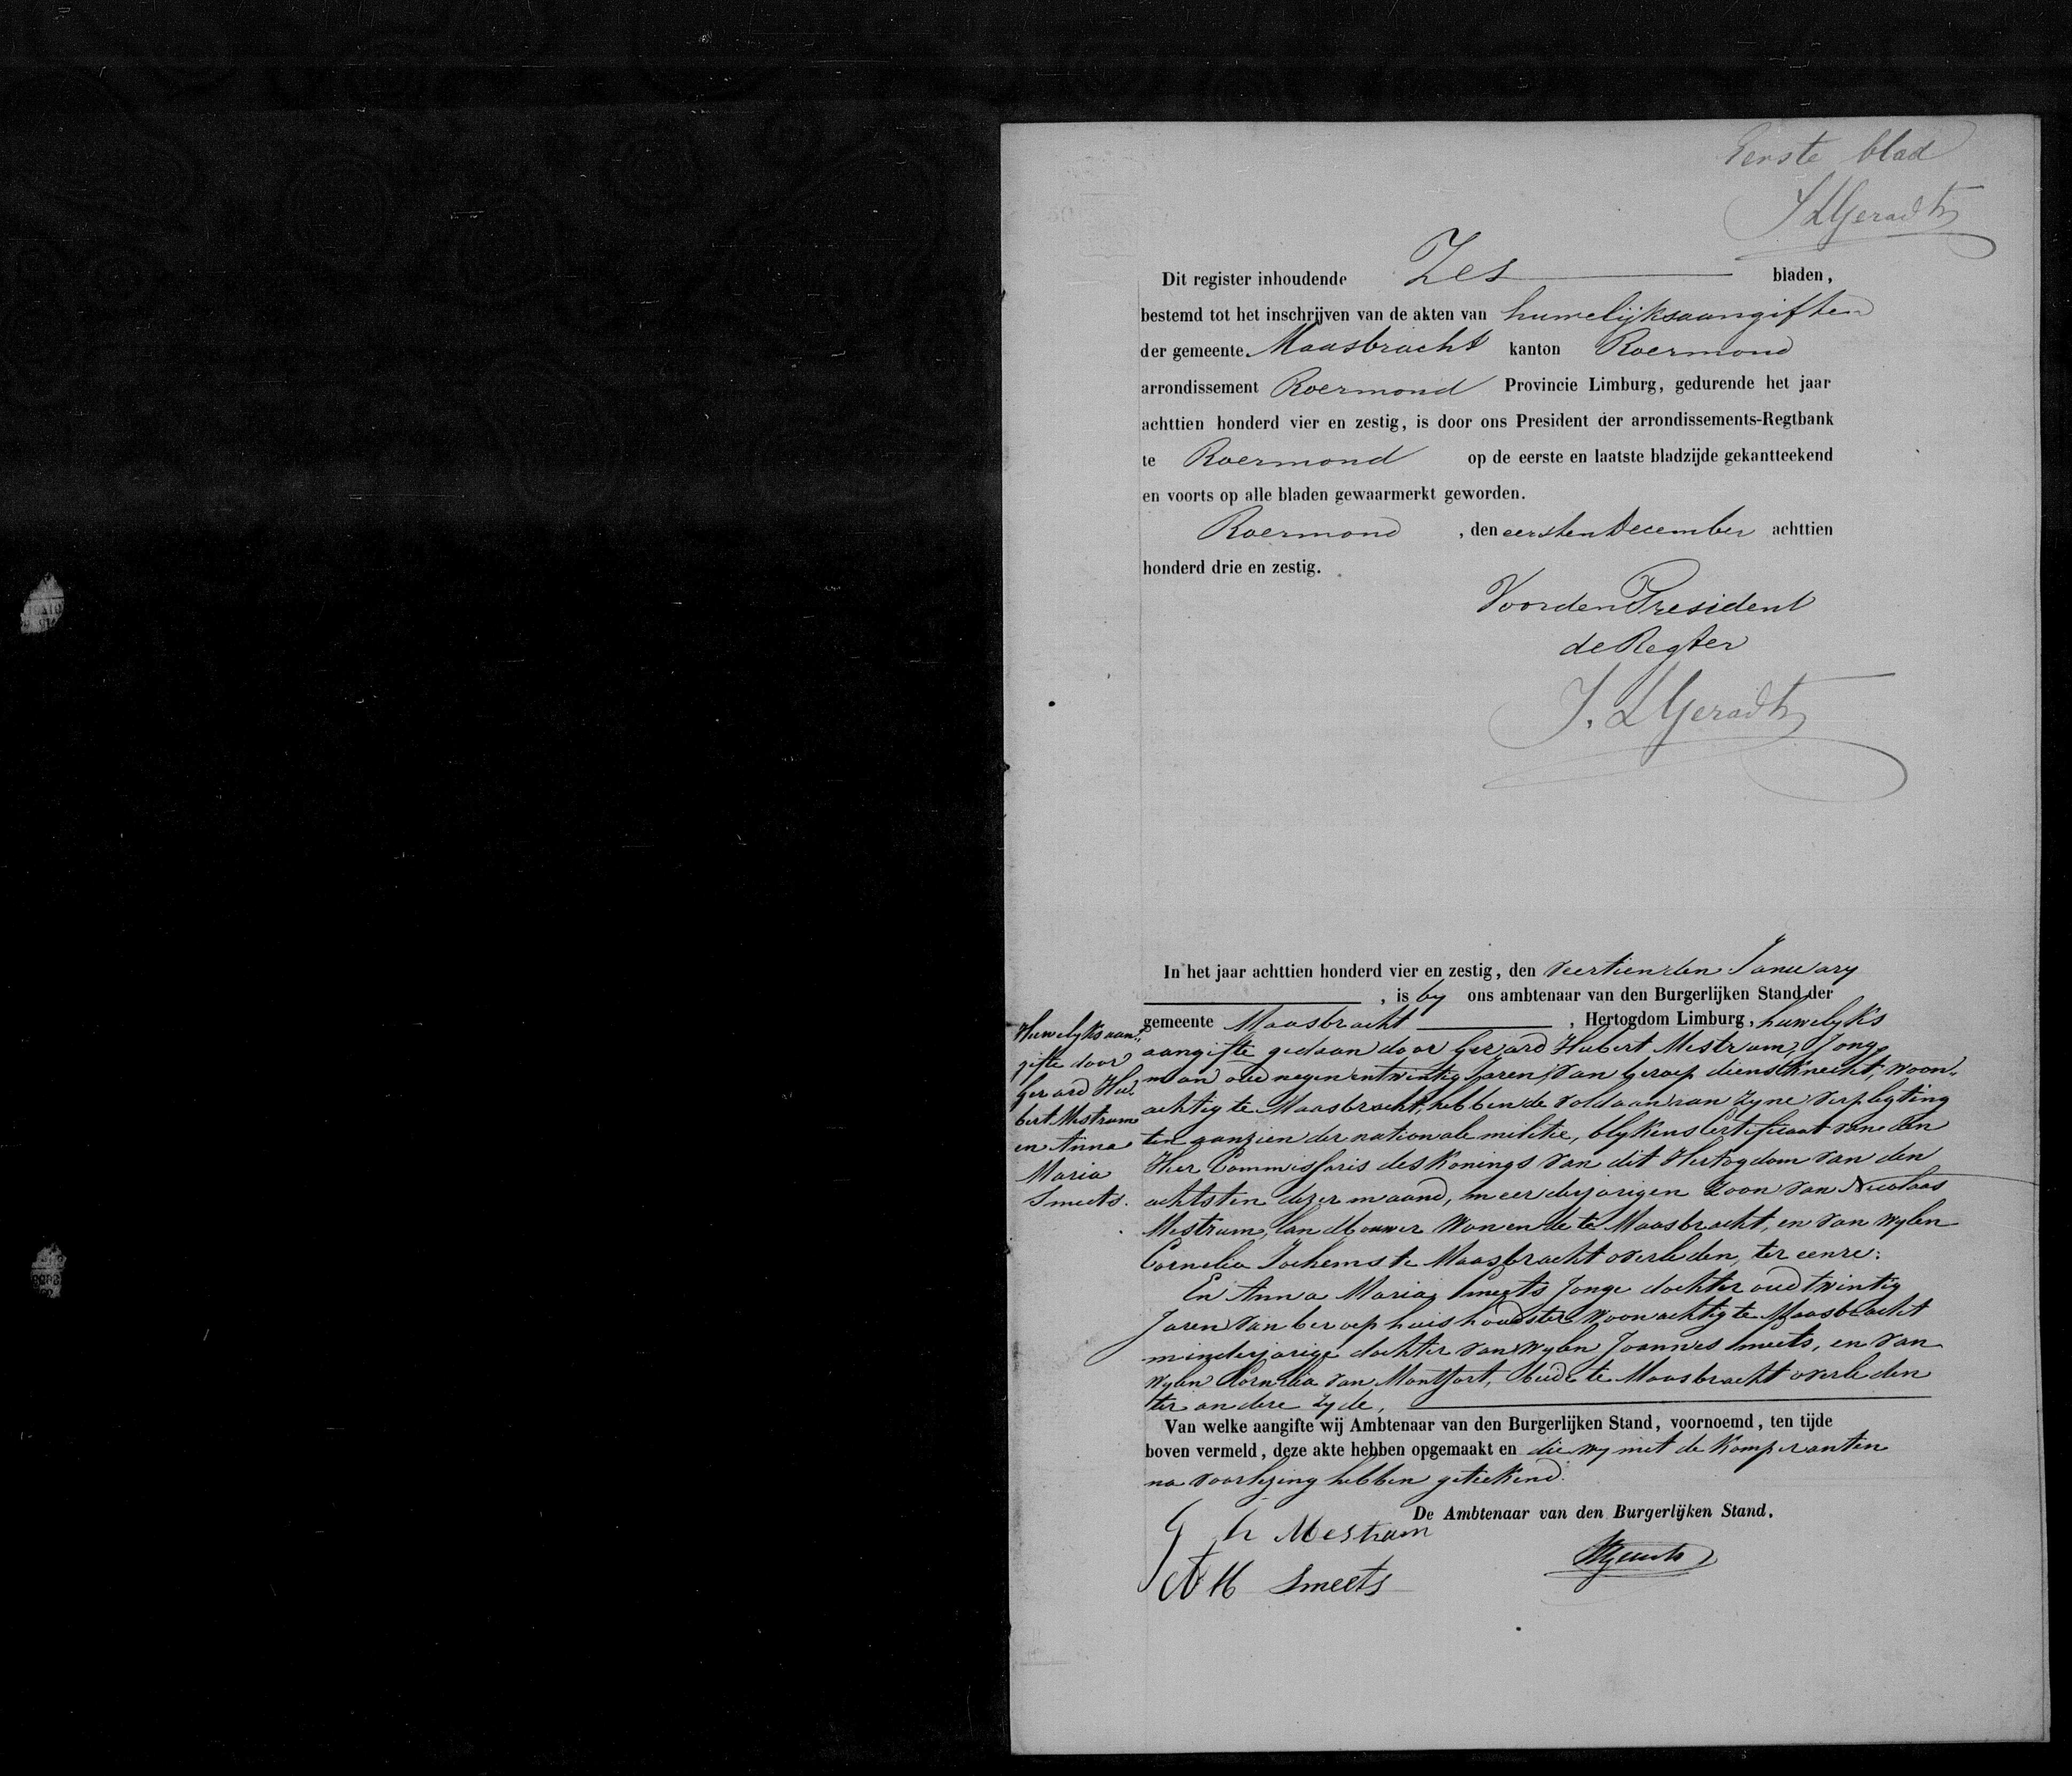 Eerste blad
J L Geradts
Dit register inhoudende Zes bladen,
bestemd tot het inschrijven van de akten van huwelijksaangiften
der gemeente Maasbracht kanton Roermond
arrondissement Roermond Provincie Limburg, gedurende het jaar
achttien honderd vier en zestig, is door ons President der arrondissements-Regtbank
te Roermond op de eerste en laatste bladzijde gekantteekend
en voorts op alle bladen gewaarmerkt geworden.
Roermond, den eersten December achttien
honderd drie en zestig.
Voor den President
de Regter
J. L Geradts
In het jaar achttien honderd vier en zestig, den veertienden January
, is by ons ambtenaar van den Burgerlijken Stand der
gemeente Maasbracht, Hertogdom Limburg, huwelyks
aangifte gedaan door Gerard Hubert Mestrum, Jong
man oud negenentwintig Jaren, van beroep dienstknecht, woon„
achtig te Maasbracht, hebbende voldaan aan zyne verpligting
ten aanzien der nationale militie, blykens Certificaat van den
Heer Commissaris des Konings van dit Hertogdom van den
achtsten dezer maand, meerderjarigen zoon van Nicolaas
Mestrum, landbouwer wonende te Maasbracht, en van wylen
Cornelia Jochems te Maasbracht overleden, ter eenre:
En Anna Maria Smeets Jonge dochter oud twintig
Jaren van beroep huishoudster woonachtig te Maasbracht
minderjarige dochter van wylen Joannes Smeets, en van
wylen Cornelia van Montfort, beide te Maasbracht overleden
ter andere zyde,
Van welke aangifte wij Ambtenaar van den Burgerlijken Stand, voornoemd, ten tijde
boven vermeld, deze akte hebben opgemaakt en die wy met de Komparanten
na voorlezing hebben geteekend.
De Ambtenaar van den Burgerlijken Stand.
G h Mestrum
A M Smeets
Huwelyksaan„
gifte door
Gerard Hu„
bert Mestrum
en Anna
Maria
Smeets.